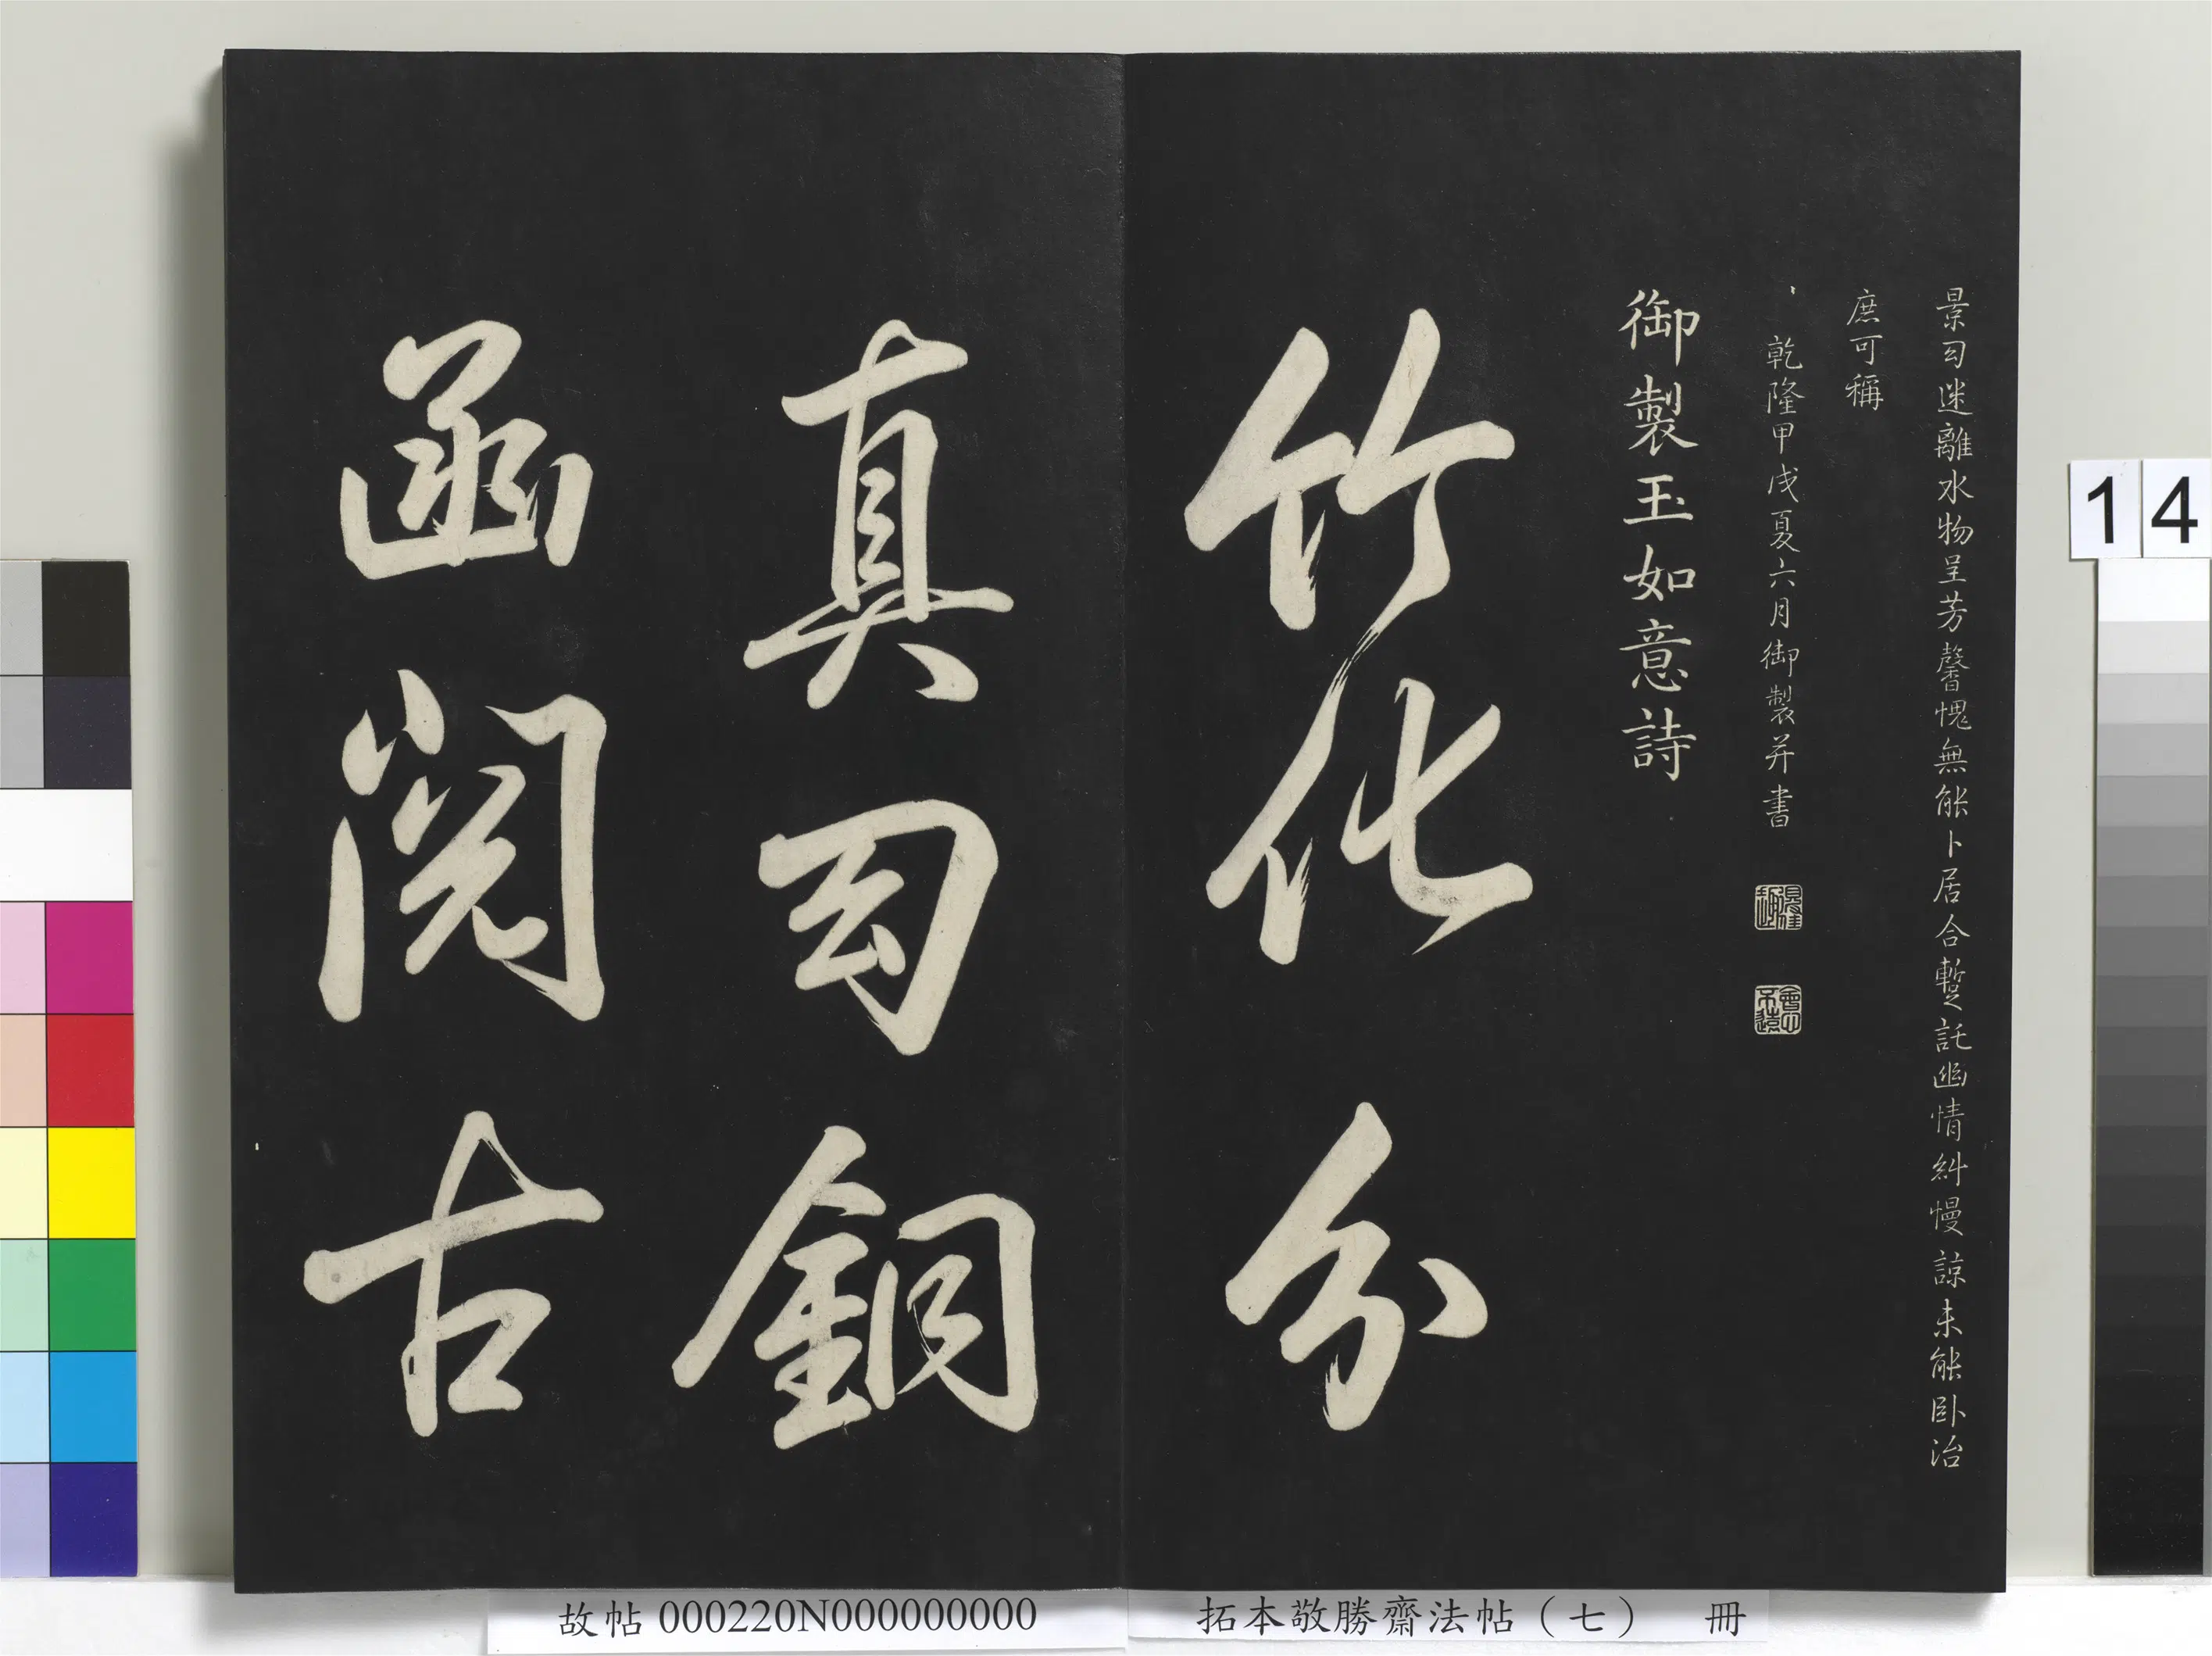 景匀迷離水物呈芳馨愧無能卜居合蹔託幽情糾慢諒未能臥治
庶可稱
乾隆甲戌夏六月御製并書
會心
不遠
御製玉如意詩
竹化分
真匀銅
函閱古
14
故帖000220N000000000
拓本敬勝齋法帖（七） 冊